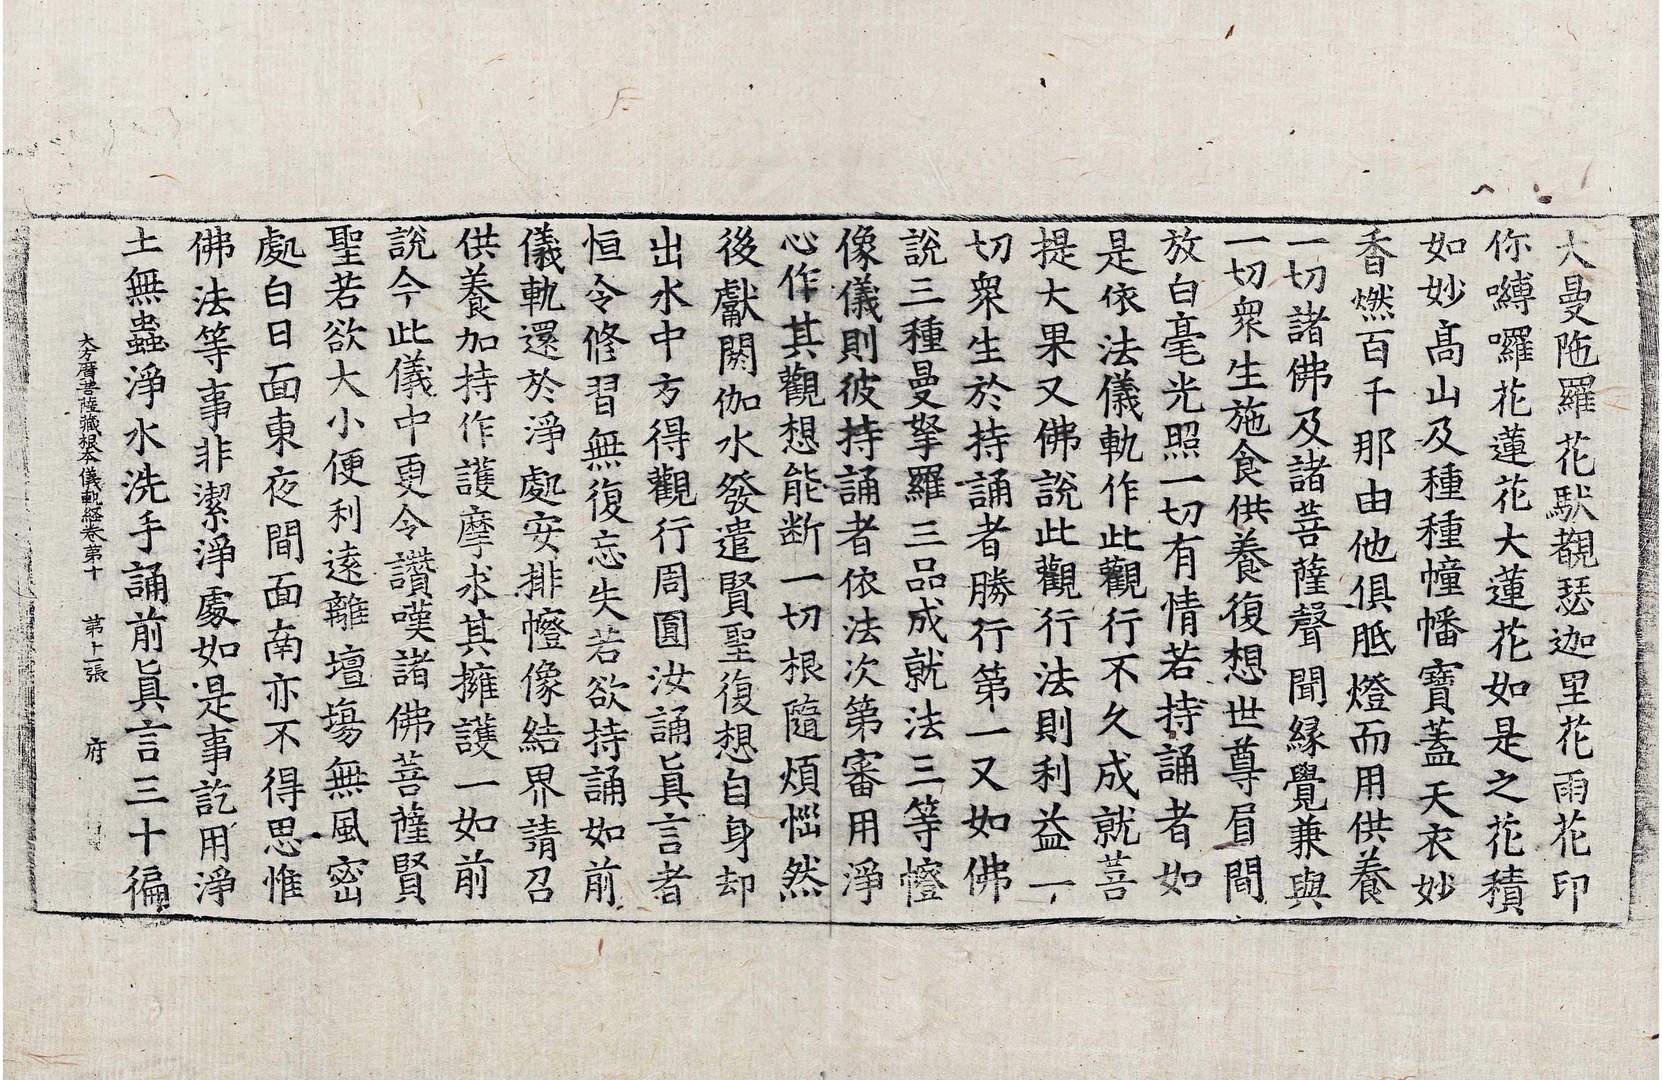 大曼陁羅花䭾覩瑟迦里花雨花印
你嚩囉花蓮花大蓮花如是之花積
如妙高山及種種幢幡寶蓋天衣妙
香燃百千那由他俱胝燈而用供養
一切諸佛及諸菩薩聲聞緣覺兼與
一切衆生施食供養復想世尊眉間
放白毫光照一切有情若持誦者如
是依法儀軌作此觀行不久成就菩
提大果又佛說此觀行法則利益一
切衆生於持誦者勝行第一又如佛
說三種曼拏羅三品成就法三等㡧
像儀則彼持誦者依法次第審用淨
心作其觀想能断一切根隨煩惱然
後獻閼伽水發遣賢聖復想自身却
出水中方得觀行周圓汝誦眞言者
恒令修習無復忘失若欲持誦如前
儀軌還於淨處安排㡧像結界請召
供養加持作護摩求其擁護一如前
說今此儀中更令讚嘆諸佛菩薩賢
聖若欲大小便利遠離壇場無風密
處白日面東夜間面南亦不得思惟
佛法等事非潔淨處如是事訖用淨
土無蟲淨水洗手誦前眞言三十徧
大方廣菩薩藏根本儀軌経卷第十 第十一張 府